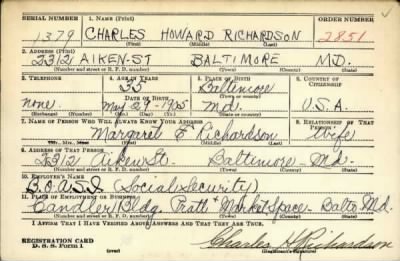 SERIAL NUMBER 1. NAME (Print) ORDER NUMBER
1379 CHARLES HOWARD RICHARDSON 2851
(First) (Middle) (Last)
2. ADDRESS (Print)
2312 AIKEN ST BALTIMORE MD.
(Number and street or R. F. D. number) (Town) (County) (State)
3. TELEPHONE 4. AGE IN YEARS 5. PLACE OF BIRTH 6. COUNTRY OF CITIZENSHIP
35 Baltimore
DATE OF BIRTH (Town or county)
none. May 29-1905 Md. U.S.A.
(Exchange) (Number) (Mo.) (Day) (Yr.) (State or country)
7. NAME OF PERSON WHO WILL ALWAYS KNOW YOUR ADDRESS 8. RELATIONSHIP OF THAT PERSON
Margaret E Richardson Wife
(Mr., Mrs., Miss) (First) (Middle) (Last)
9. ADDRESS OF THAT PERSON
2312 Aiken St. Baltimore Md.
(Number and street or R. F. D. number) (Town) (County) (State)
10. EMPLOYER'S NAME
B.O.A.S.I. (Social Security)
11. PLACE OF EMPLOYMENT OR BUSINESS
Candler Bldg. Pratt + Market Space - Balto Md.
(Number and street or R. F. D. number) (Town) (County) (State)
I AFFIRM THAT I HAVE VERIFIED ABOVE ANSWERS AND THAT THEY ARE TRUE.
REGISTRATION CARD
D. S. S. Form 1 (over) Charles H Richardson
(Registrant's signature)